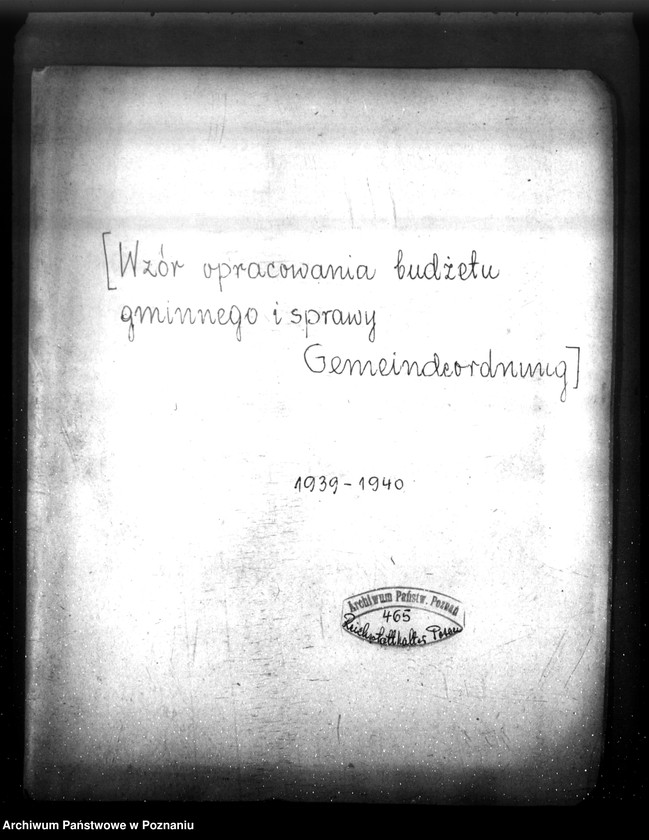 [Wzór opracowania budżetu
gminnego i sprawy
Gemeindeordnung]
1939-1940
Archiwum Państw. Poznań
465
Reichsstatthalter Posen
Archiwum Państwowe w Poznaniu